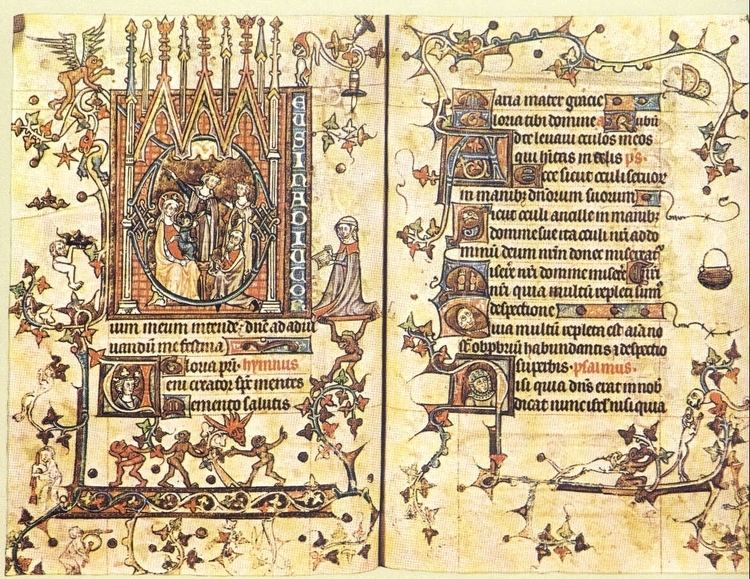 EUSINADIUTO
uum meum intende · dñe ad adiu
uandum me festina
Gloria pri· hymnus
Ueni creator sp̄c mentes
Memento salutis
Maria mater gracie
Gloria tibi domine
Ad te leuaui oculos meos
qui hitas in celis ps·
Ecce sicut oculi seruor
in manibꝫ dnorum suorum
Sicut oculi ancille in manibꝫ
domine sue ita oculi nr̄i ad do
minū deum nr̄m donec misereat
Miserere nr̄i domine misere
nr̄i quia multū repleti sum
despectione
Quia multū repleta est aīa nō
obpbriū habundantis ⁊ despectio
superbis · psalmus·
Nisi quia dn̄s erat in nob
dicat nunc isrl nisi quia